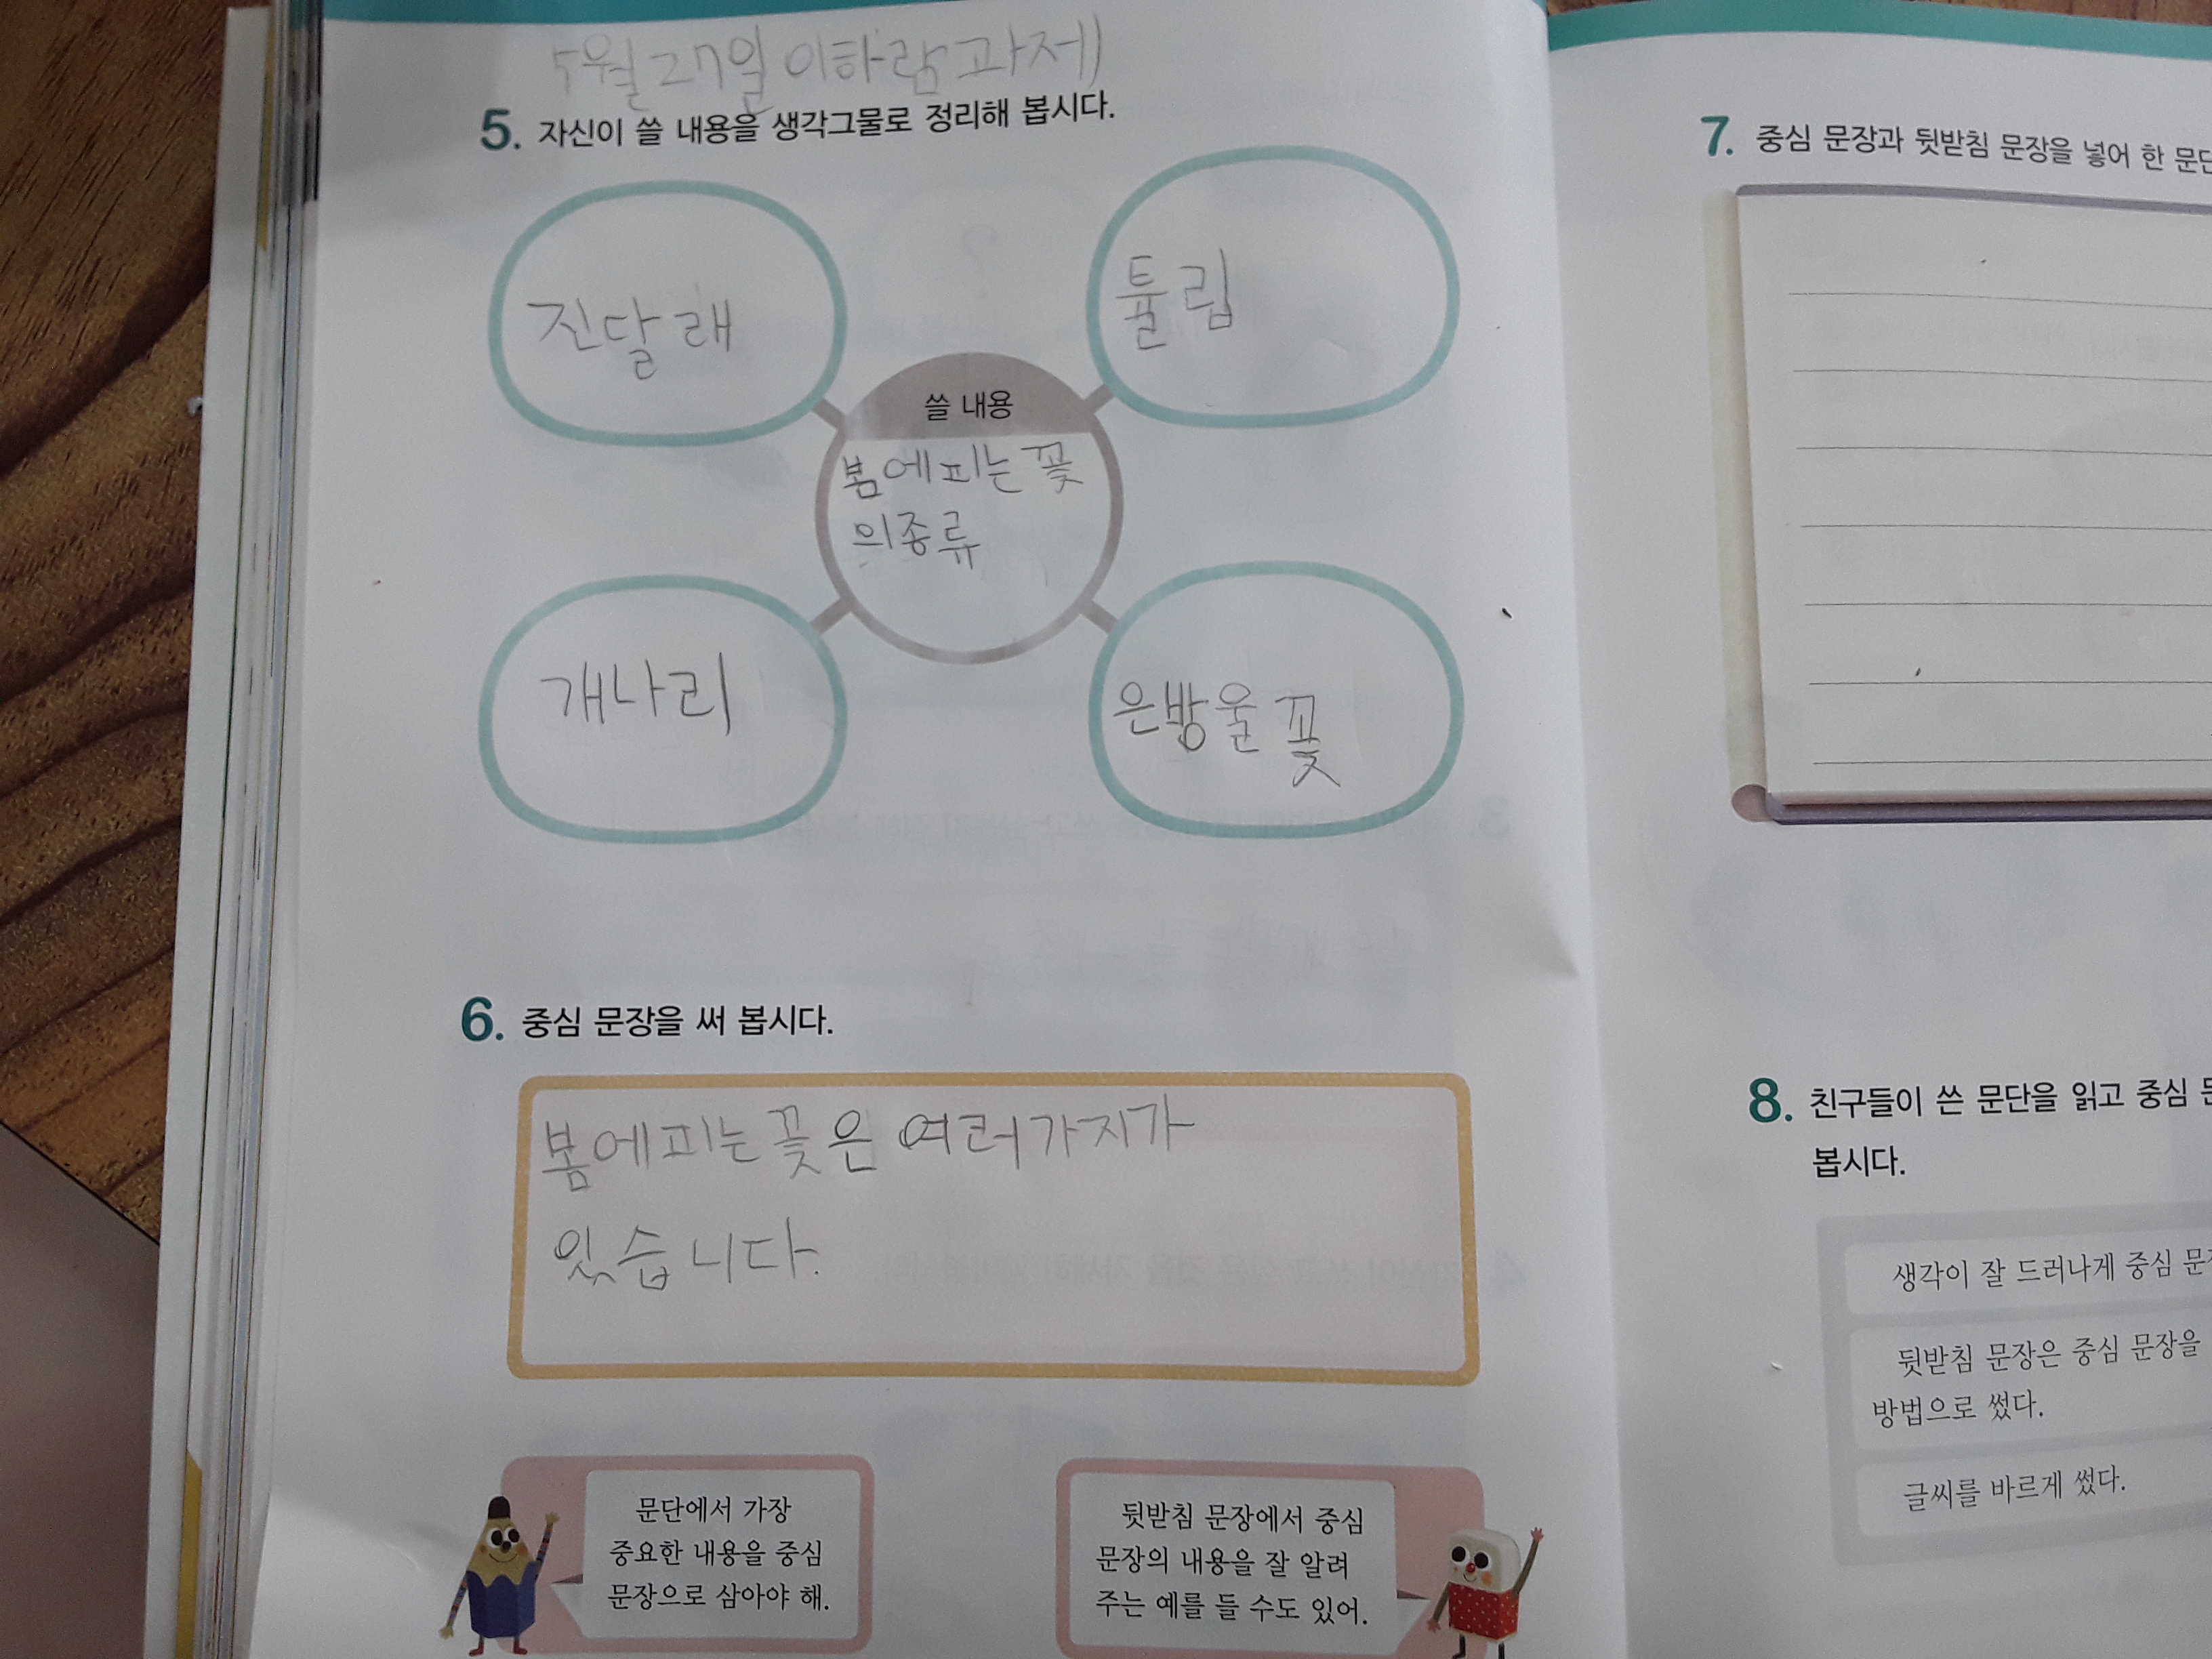 5월27일 이하람 과제
5. 자신이 쓸 내용을 생각그물로 정리해 봅시다.
진달래
튤립
쓸 내용
봄에피는 꽃
의종류
개나리
은방울꽃
6. 중심 문장을 써 봅시다.
봄에피는꽃은 여러가지가
있습니다.
문단에서 가장
중요한 내용을 중심
문장으로 삼아야 해.
뒷받침 문장에서 중심
문장의 내용을 잘 알려
주는 예를 들 수도 있어.
7. 중심 문장과 뒷받침 문장을 넣어 한
8. 친구들이 쓴 문단을 읽고 중심
봅시다.
생각이 잘 드러나게 중심
뒷받침 문장은 중심 문장을
방법으로 썼다.
글씨를 바르게 썼다.